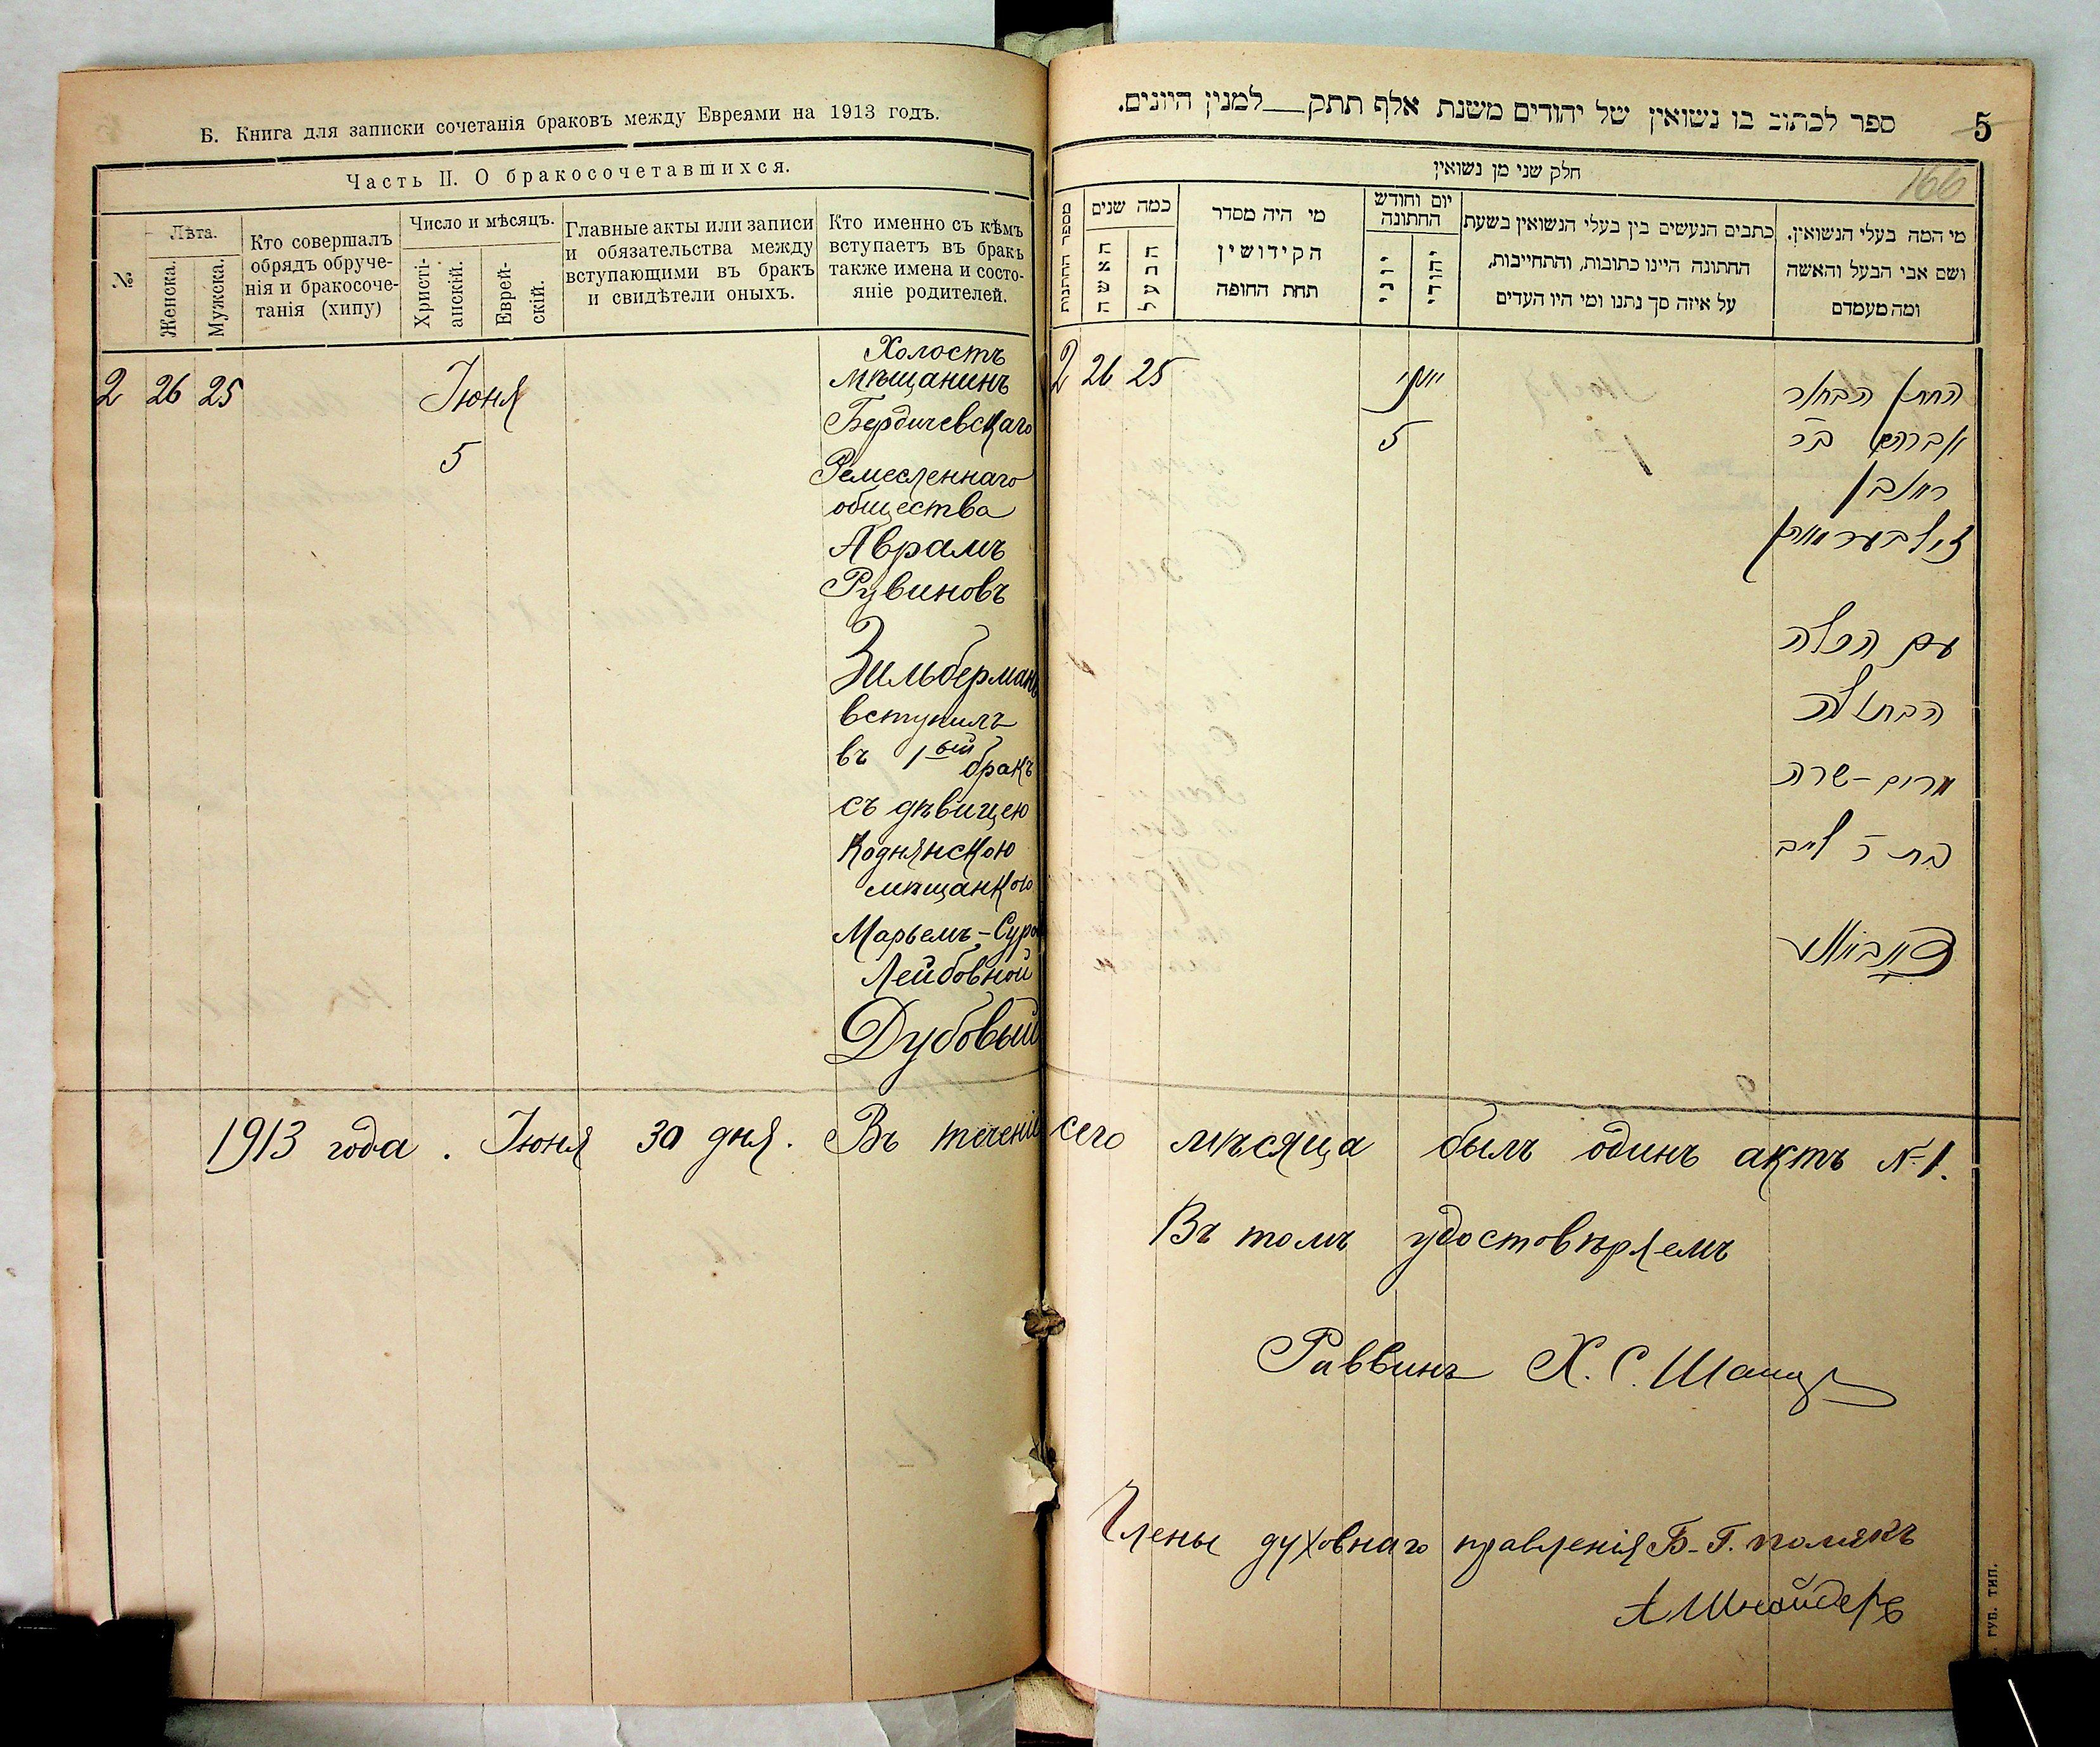 Б. Книга для записки сочетанія браковъ между Евреями на 1913 годъ.
Часть II. О бракосочетавшихся.
№
Лѣта.
Женска.
Мужска.
Кто совершалъ
обрядъ обруче-
нія и бракосоче-
танія (хипу)
Число и мѣсяцъ.
Христі-
анскій.
Еврей-
скій.
Главные акты или записи
и обязательства между
вступающими въ бракъ
и свидѣтели оныхъ.
Кто именно съ кѣмъ
вступаетъ въ бракъ
также имена и состо-
яніе родителей.
2 26 25
Іюня
5
Холостъ
мѣщанинъ
Бердичевскаго
Ремесленнаго
общества
Аврамъ
Рувиновъ
Зильберманъ
вступилъ
въ 1ый бракъ
съ дѣвицею
Коднянскою
мѣщанкою
Марьемъ-Сурой
Лейбовной
Дубовый
ספר לכתוב בו נשואין של יהודים משנת אלף תתק__למנין היונים.
5
166
חלק שני מן נשואין
מספר החתנות
כמה שנים
האשה
הבעל
מי היה מסדר
הקידושין
תחת החופה
יום וחודש
החתונה
יוני
יהודי
כתבים הנעשים בין בעלי הנשואין בשעת
החתונה היינו כתובות, והתחייבות,
על איזה סך נתנו ומי היו העדים
מי המה בעלי הנשואין.
ושם אבי הבעל והאשה
ומה מעמדם
2 26 25
יוני
5
החתן הבחור
אברהם ב״ר
ראובן
זילבערמאן
עם הכלה
הבתולה
מרים-שרה
בת ר לייב
1913 года. Іюня 30 дня. Въ теченіи сего мѣсяца былъ одинъ актъ №1.
Въ томъ удостовѣряемъ
Раввинъ Х. С.
Члены духовнаго правленія Б-Г. Полякъ
А Шнайдеръ
ГУБ. ТИП.